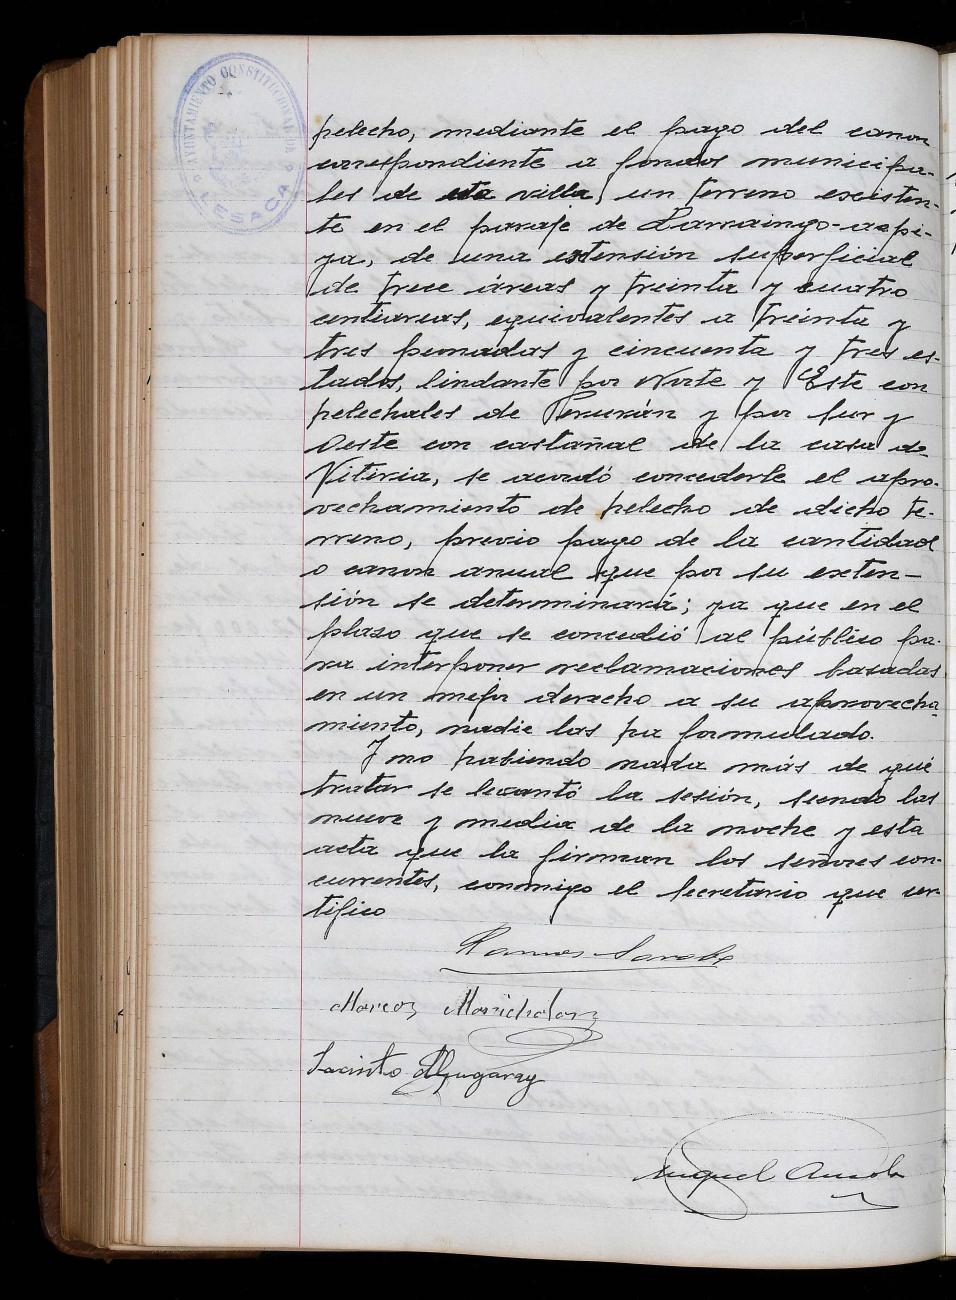 AYUNTAMIENTO CONSTITUCIONAL DE
LESACA
helecho, mediante el pago del canon
correspondiente a fondos municipa-
les de esta villa, un terreno existen-
te en el paraje de Larraingo-azpi-
ya, de una extensión superficial
de trece áreas y treinta y cuatro
centiareas, equivalentes a treinta y
tres peonadas y cincuenta y tres es-
tados, lindante por Norte y Este con
helechales de y por Sur y
Oeste con castañal de la casa de
Vitiria, se acordó concederle el apro-
vechamiento de helecho de dicho te-
rreno, previo pago de la cantidad
o canon anual que por su exten-
sión se determinará; ya que en el
plazo que se concedió al público pa-
ra interponer reclamaciones basadas
en un mejor derecho a su aprovecha-
miento, nadie las ha formulado.
Y no habiendo nada más de qué
tratar se levantó la sesión, siendo las
nueve y media de la noche y esta
acta que la firman los señores con-
currentes, conmigo el Secretario que cer-
tifico
Ramon
Marcos Marichalar
Jacinto
Miguel